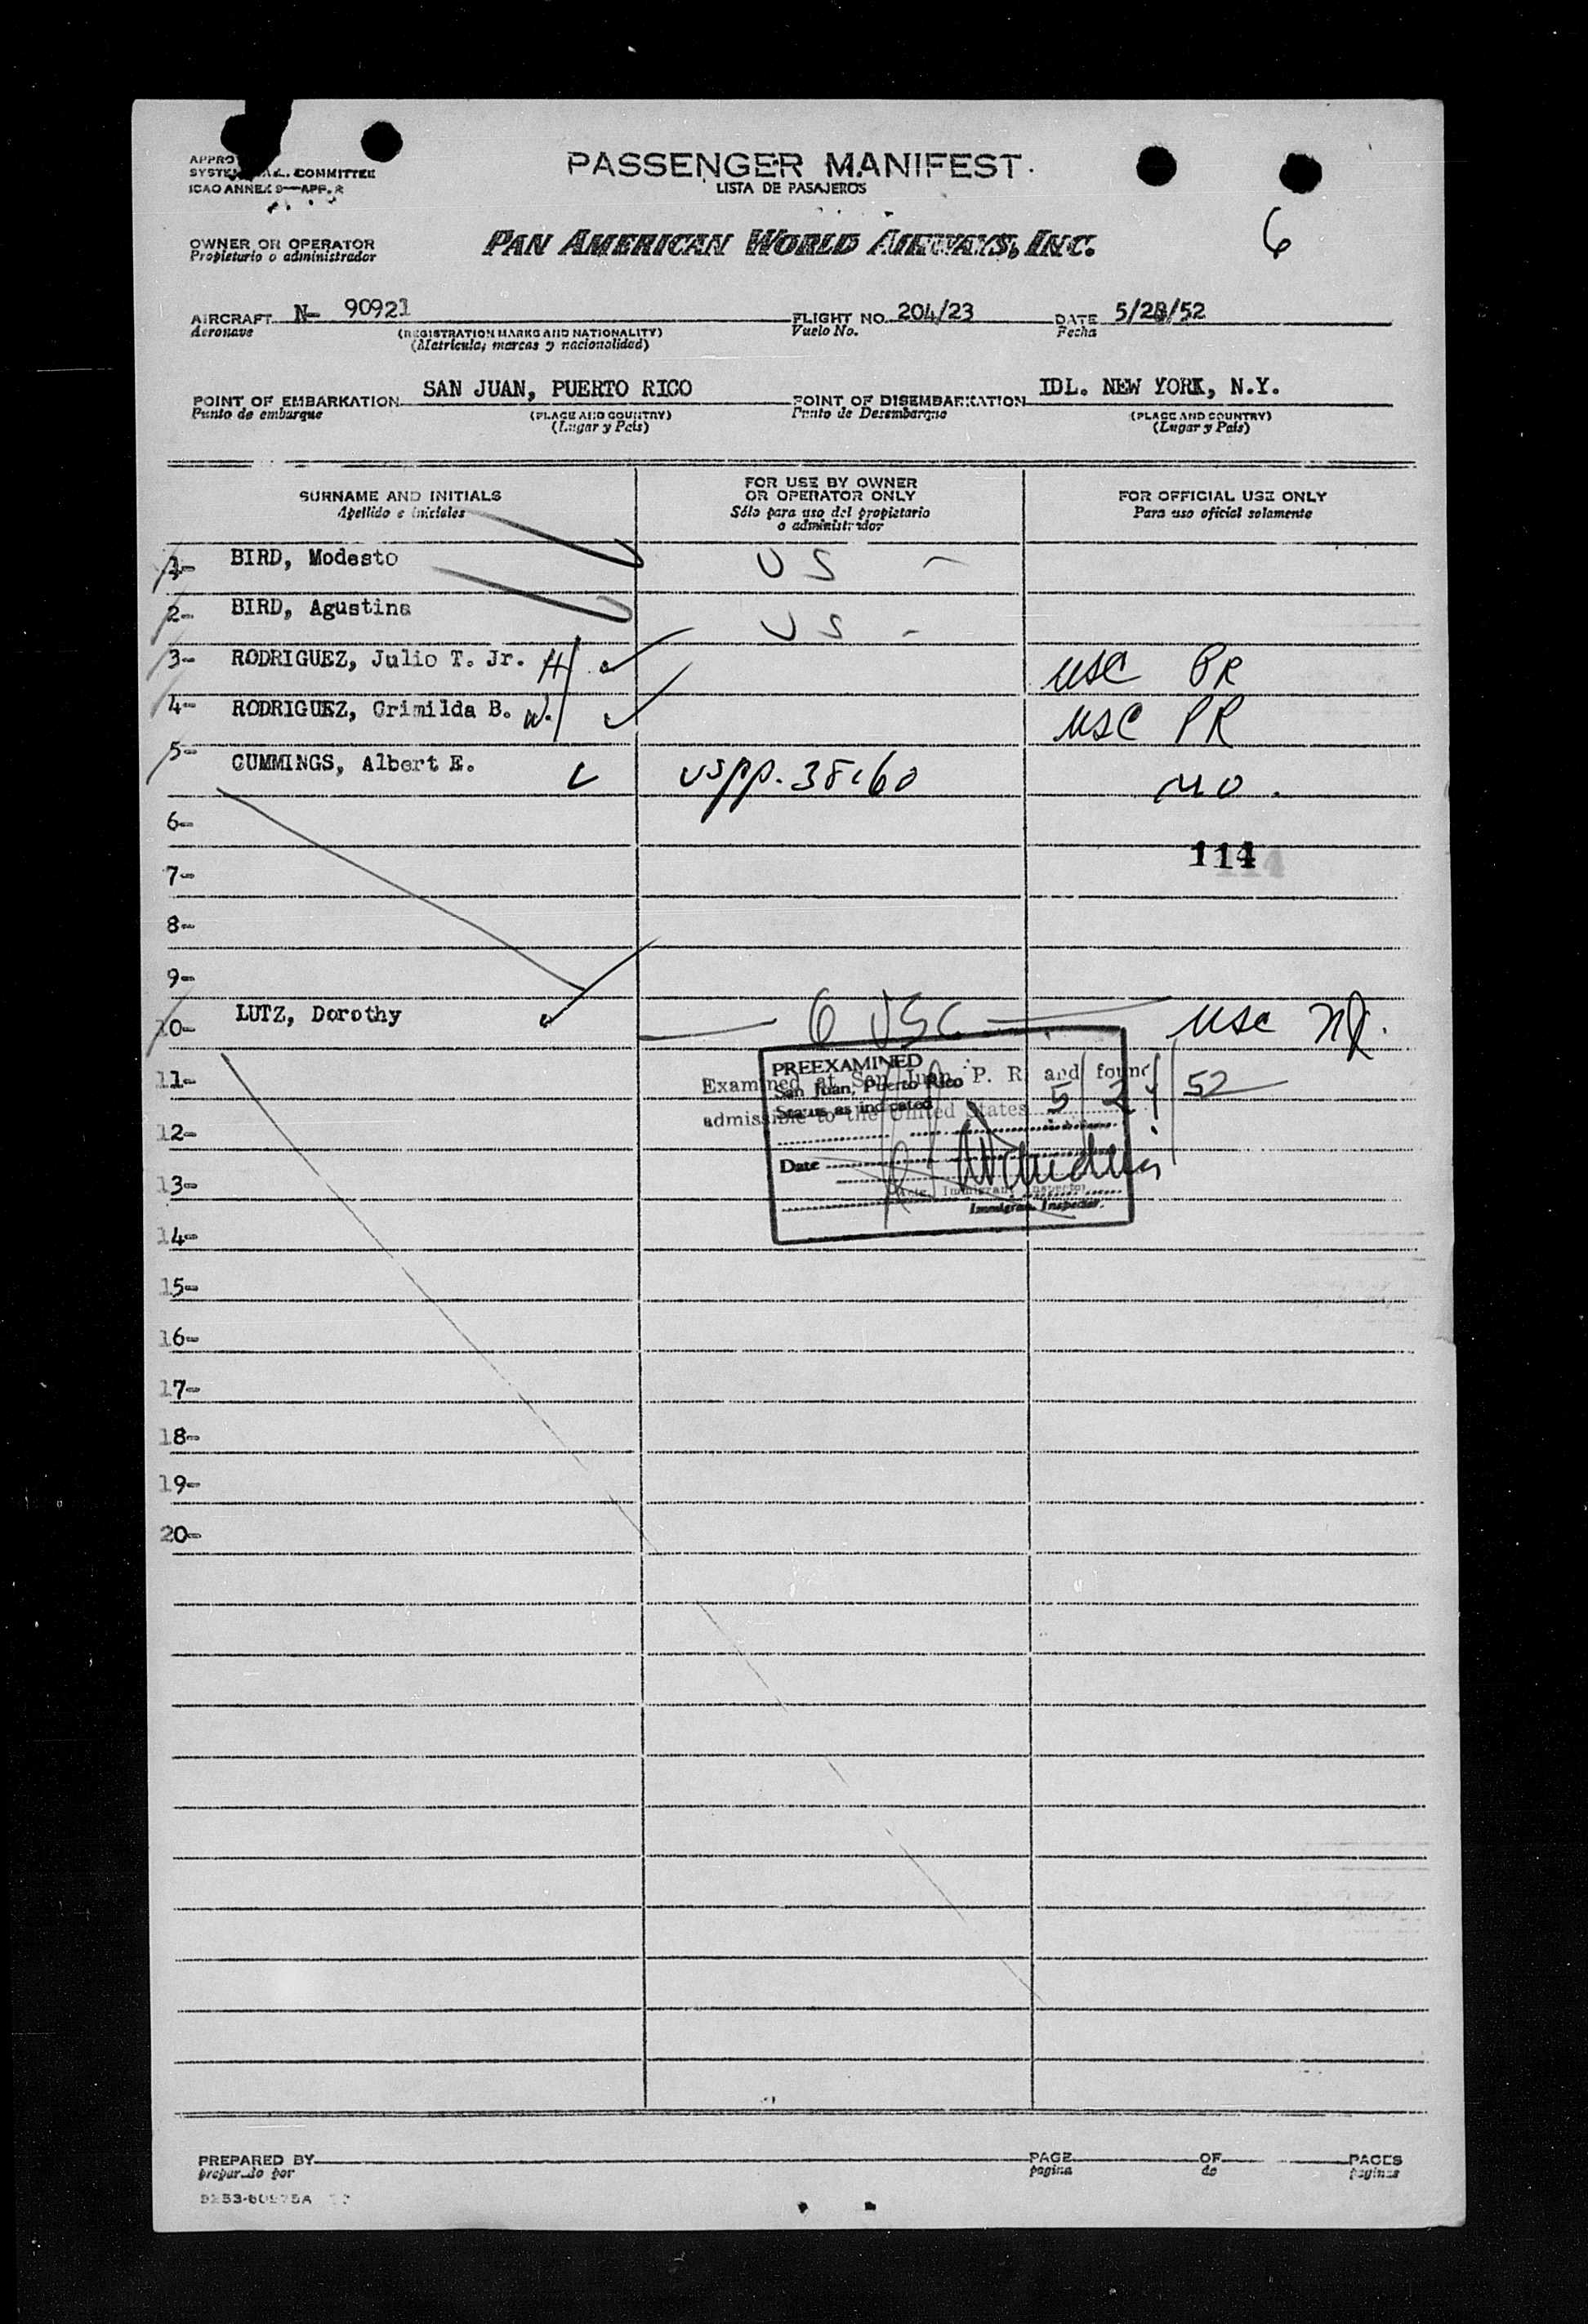 PASSENGER MANIFEST.
LISTA DE PASAJEROS
COMMITTEE
ICAO ANNEX 9—APP. 2
OWNER OR OPERATOR
Propietario o administrador
PAN AMERICAN WORLD AIRWAYS, INC.
6
AIRCRAFT N- 90921 FLIGHT NO. 204/23 DATE 5/28/52
Aeronave (REGISTRATION MARKS AND NATIONALITY) Vuelo No. Fecha
(Matricula, marcas y nacionalidad)
POINT OF EMBARKATION SAN JUAN, PUERTO RICO POINT OF DISEMBARKATION IDL. NEW YORK, N.Y.
Punto de embarque (PLACE AND COUNTRY) Punto de Desembarque (PLACE AND COUNTRY)
(Lugar y Pais) (Lugar y Pais)
SURNAME AND INITIALS FOR USE BY OWNER OR OPERATOR ONLY FOR OFFICIAL USE ONLY
Apellido e iniciales Sólo para uso del propietario o administrador Para uso oficial solamente
1- BIRD, Modesto US -
2- BIRD, Agustina US -
3- RODRIGUEZ, Julio T. Jr. H USC PR
4- RODRIGUEZ, Grimilda B. W. USC PR
5- CUMMINGS, Albert E. USpp. MO.
6-
114
7-
8-
9-
10- LUTZ, Dorothy 6 USC USC NJ.
11-
12-
13-
14-
15-
16-
17-
18-
19-
20-
PREEXAMINED
San Juan, Puerto Rico
Status as indicated
Date
Immigrant Inspector.
Examined at San Juan, P. R. and found
admissible to the United States 5/27/52
Immigrant Inspector
PREPARED BY PAGE OF PAGES
preparado por pagina de paginas